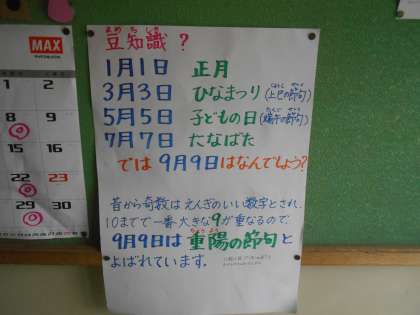 MAX
1 2
8 9
15 16
22 23
29 30
豆知識？
まめちしき
1月1日 正月
3月3日 ひなまつり(上巳の節句)
5月5日 子どもの日(端午の節句)
7月7日 たなばた
では 9月9日はなんでしょう？
昔から奇数はえんぎのいい数字とされ、
10までで一番大きな9が重なるので
9月9日は重陽の節句と
よばれています。